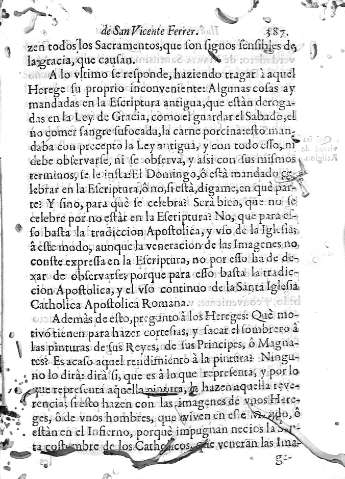 de San Vicente Ferrer. 387.
zen todos los Sacramentos, que son signos sensibles de
la gracia, que causan.
A lo vltimo se responde, haziendo tragar à aquel
Herege su proprio inconveniente: Algunas cosas ay
mandadas en la Escriptura antigua, que estàn deroga-
das en la Ley de Gracia, como el guardar el Sabado, el
no comer sangre sufocada, la carne porcina: esto man-
daba con precepto la Ley antigua, y con todo esso, ni
debe observarse, ni se observa, y assi con sus mismos
terminos, se le insta: El Domingo, ò està mandado ce-
lebrar en la Escriptura, ò no, si està, digame, en què par-
te? Y sino, para què se celebra? Serà bien, que no se
celebre por no estàr en la Escriptura? No, que para es-
so basta la tradiccion Apostolica, y vso de la Iglesia;
à este modo, aunque la veneracion de las Imagenes no
conste expressa en la Escriptura, no por esso ha de de-
xar de observarse; porque para esso basta la tradic-
cion Apostolica, y el vso continuo de la Santa Iglesia
Catholica Apostolica Romana.
Además de esto, pregunto à los Hereges: Què mo-
tivo tienen para hazer cortesias, y sacar el sombrero à
las pinturas de sus Reyes, de sus Principes, ò Magna-
tes? Es acaso aquel rendimiento à la pintura? Ningu-
no lo dirà: dirà si, que es à lo que representa, y por lo
que representa aquella pintura, le hazen aquella reve-
rencia; si esto hazen con las imagenes de vnos Here-
ges, ò de vnos hombres, que viven en este Mundo, ò
estàn en el Infierno, porquè impugnan necios la San-
ta costumbre de los Catholicos, que veneran las Ima-
ge-